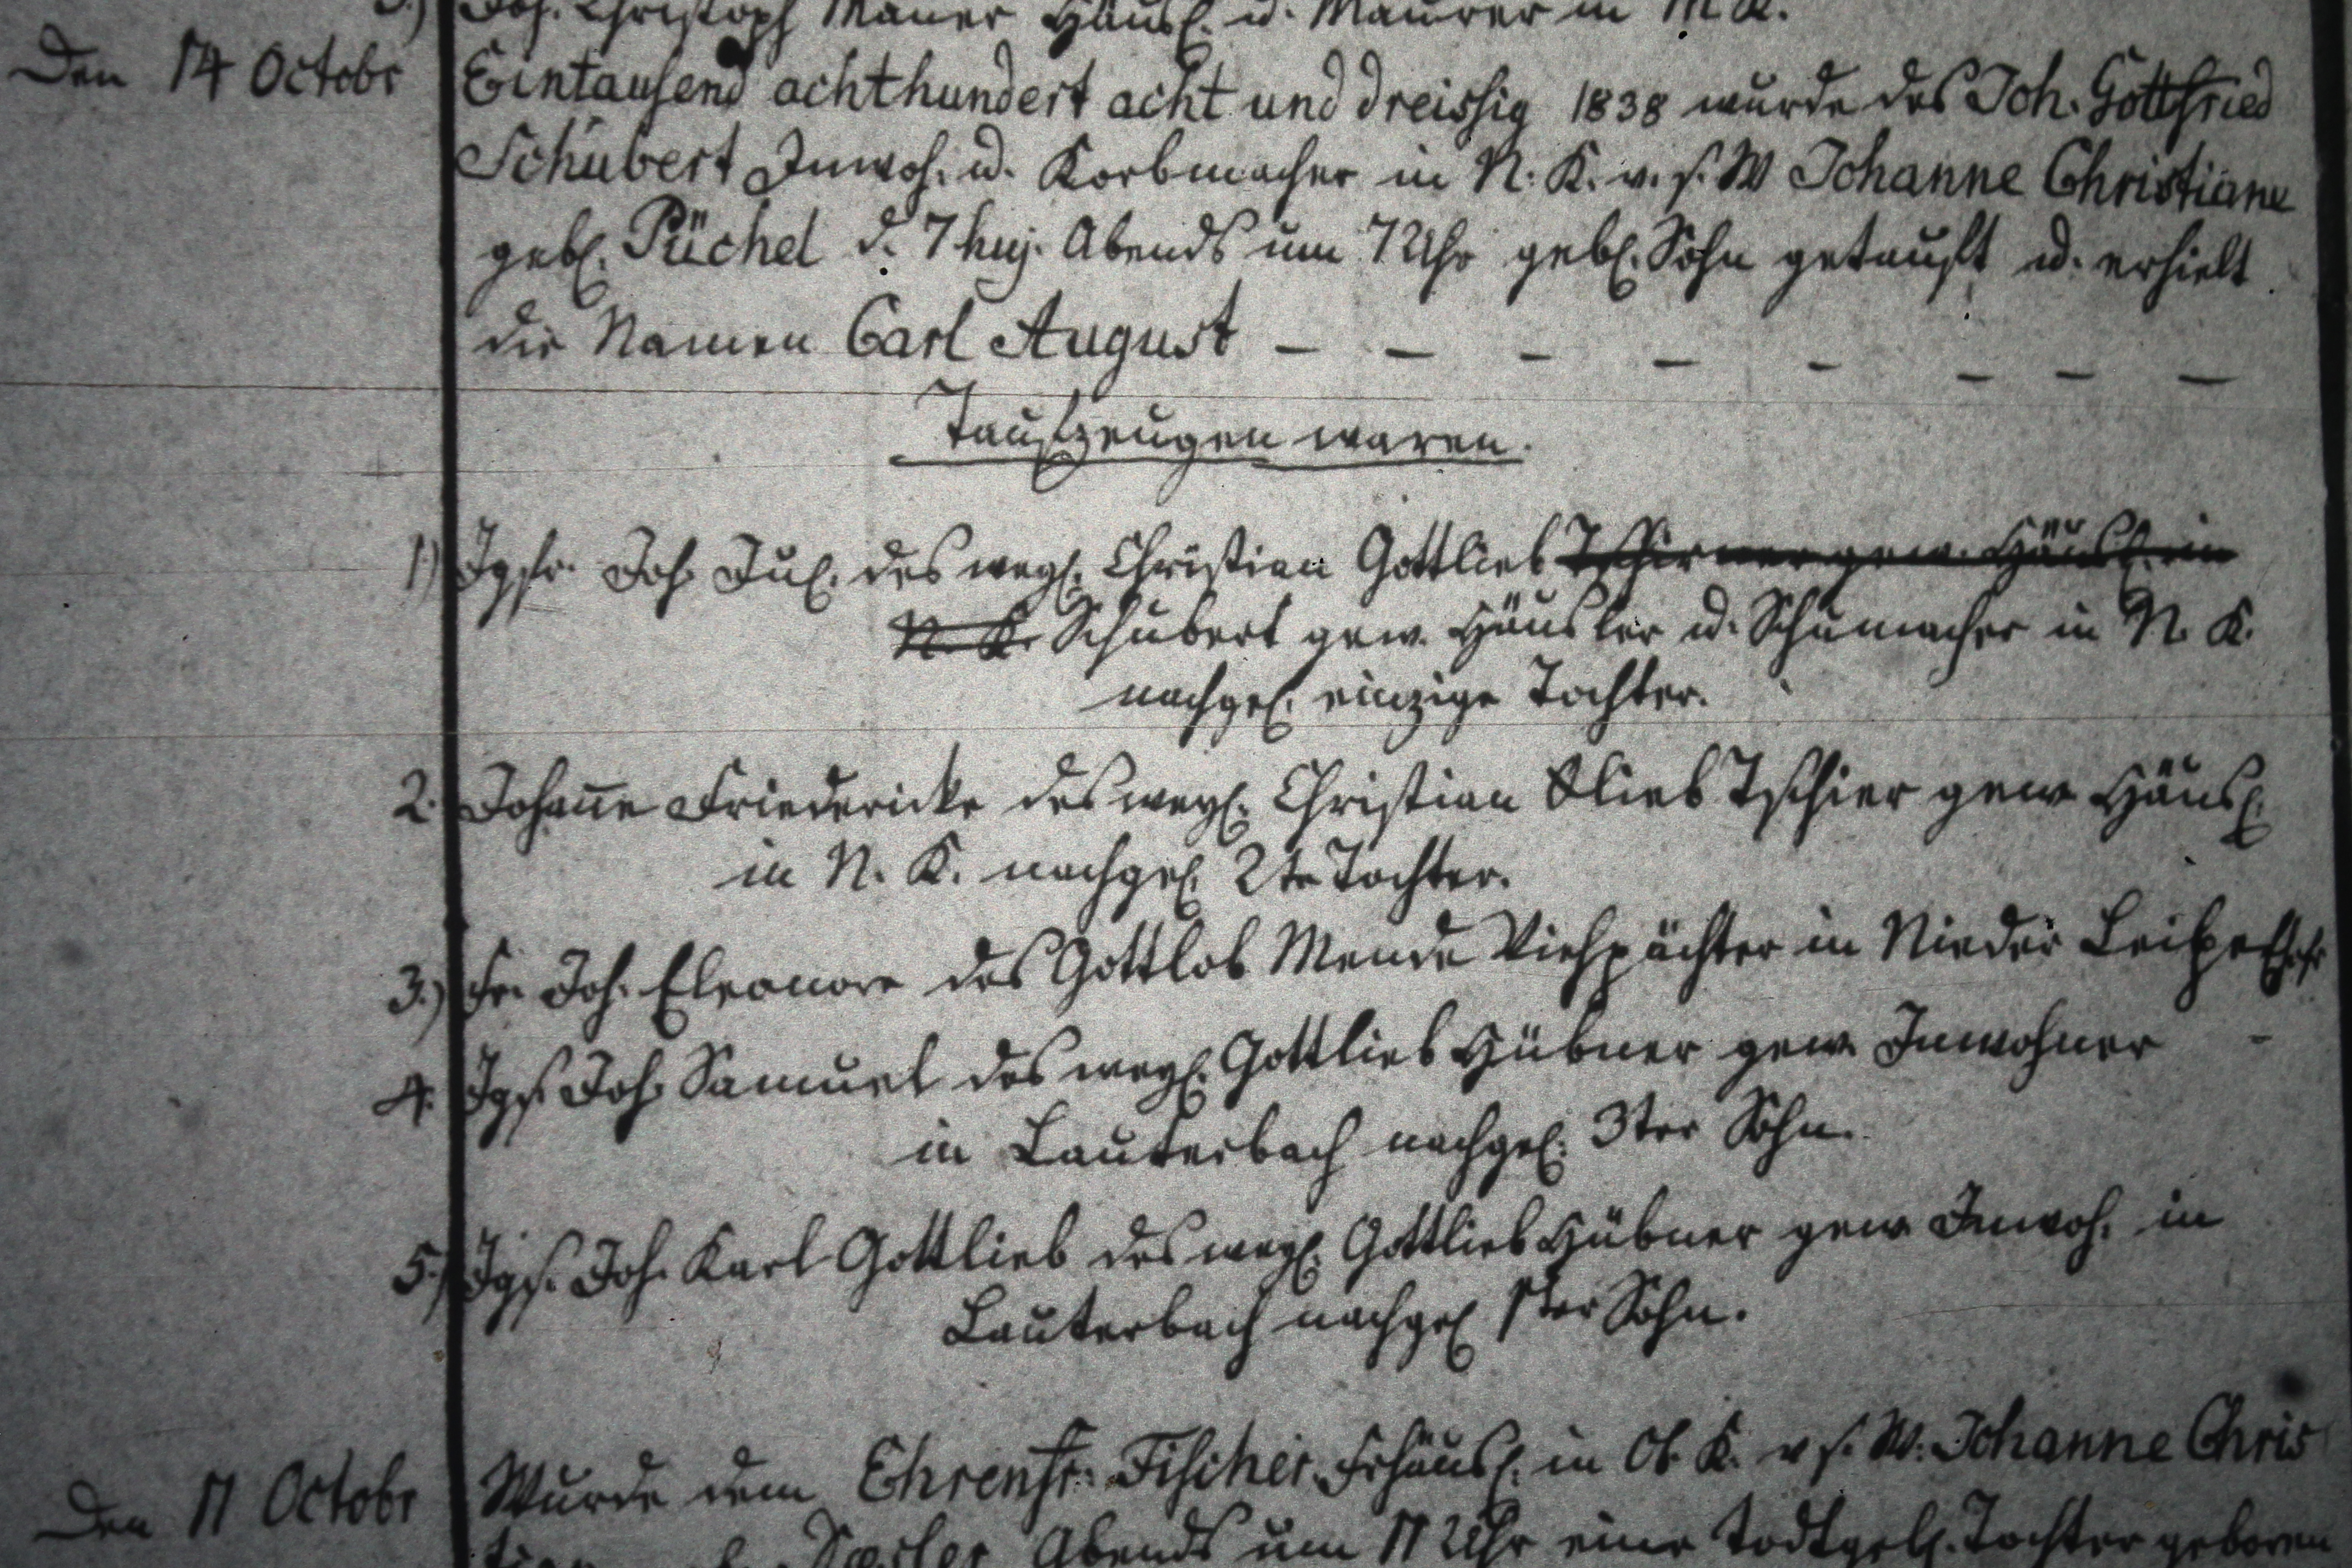 5.) Joh. Christoph Mauer Häusl. u. Maurer in M. K.
Den 14 Octobr Eintausend achthundert acht und dreissig 1838 wurde des Joh. Gottfried
Schubert Inwoh. u. Korbmacher in N. K. v. s. W Johanne Christiane
gebl. Püchel d. 7 huj. Abends um 7 Uhr gebl. Sohn getauft u. erhielt
die Namen Carl August – – – – – – – –
Taufzeugen waren.
1) Jgfr. Joh. Jul. des weyl. Christian Gottlieb Tschirner gew. Häusl. in
N. K. Schubert gew. Häusler u. Schumacher in N. K.
nachgel. einzige Tochter.
2. Johanne Friedericke des weyl. Christian Glieb Tschier gew Häusl.
in N. K. nachgel. 2te Tochter.
3.) Fr. Joh. Eleonore des Gottlob Mende Viehpächter in Nieder Leipe Ehefr
4. Jgs. Joh. Samuel des weyl. Gottlieb Hübner gew Inwohner
in Lauterbach nachgel. 3ter Sohn.
5.) Jgs. Joh. Karl Gottlieb des weyl. Gottlieb Hübner gew Inwoh. in
Lauterbach nachgel 1ster Sohn.
Den 11 Octobr Wurde dem Ehrenfr. Fischer Frhäusl. in Ob. K. v s. W. Johanne Chris
Abends um 11 Uhr eine todtgeb. Tochter geboren